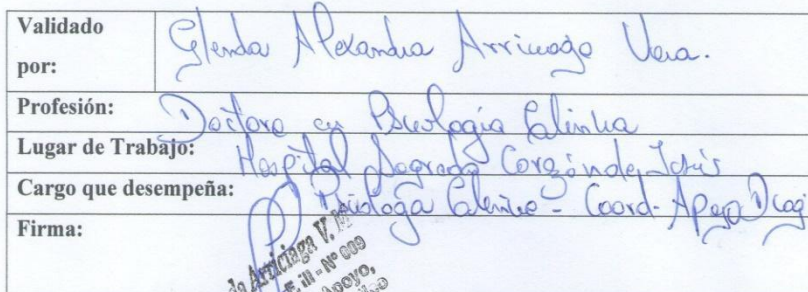 Validado por: Glenda Alexandra Arriciaga Vera.
Profesión: Doctora en Psicología Clínica
Lugar de Trabajo: Hospital Sagrado Corazón de Jesús
Cargo que desempeña: Psicóloga Clínica - Coord. Apoyo Diag
Firma:
Arriciaga V.
Nº 009
Apoyo,